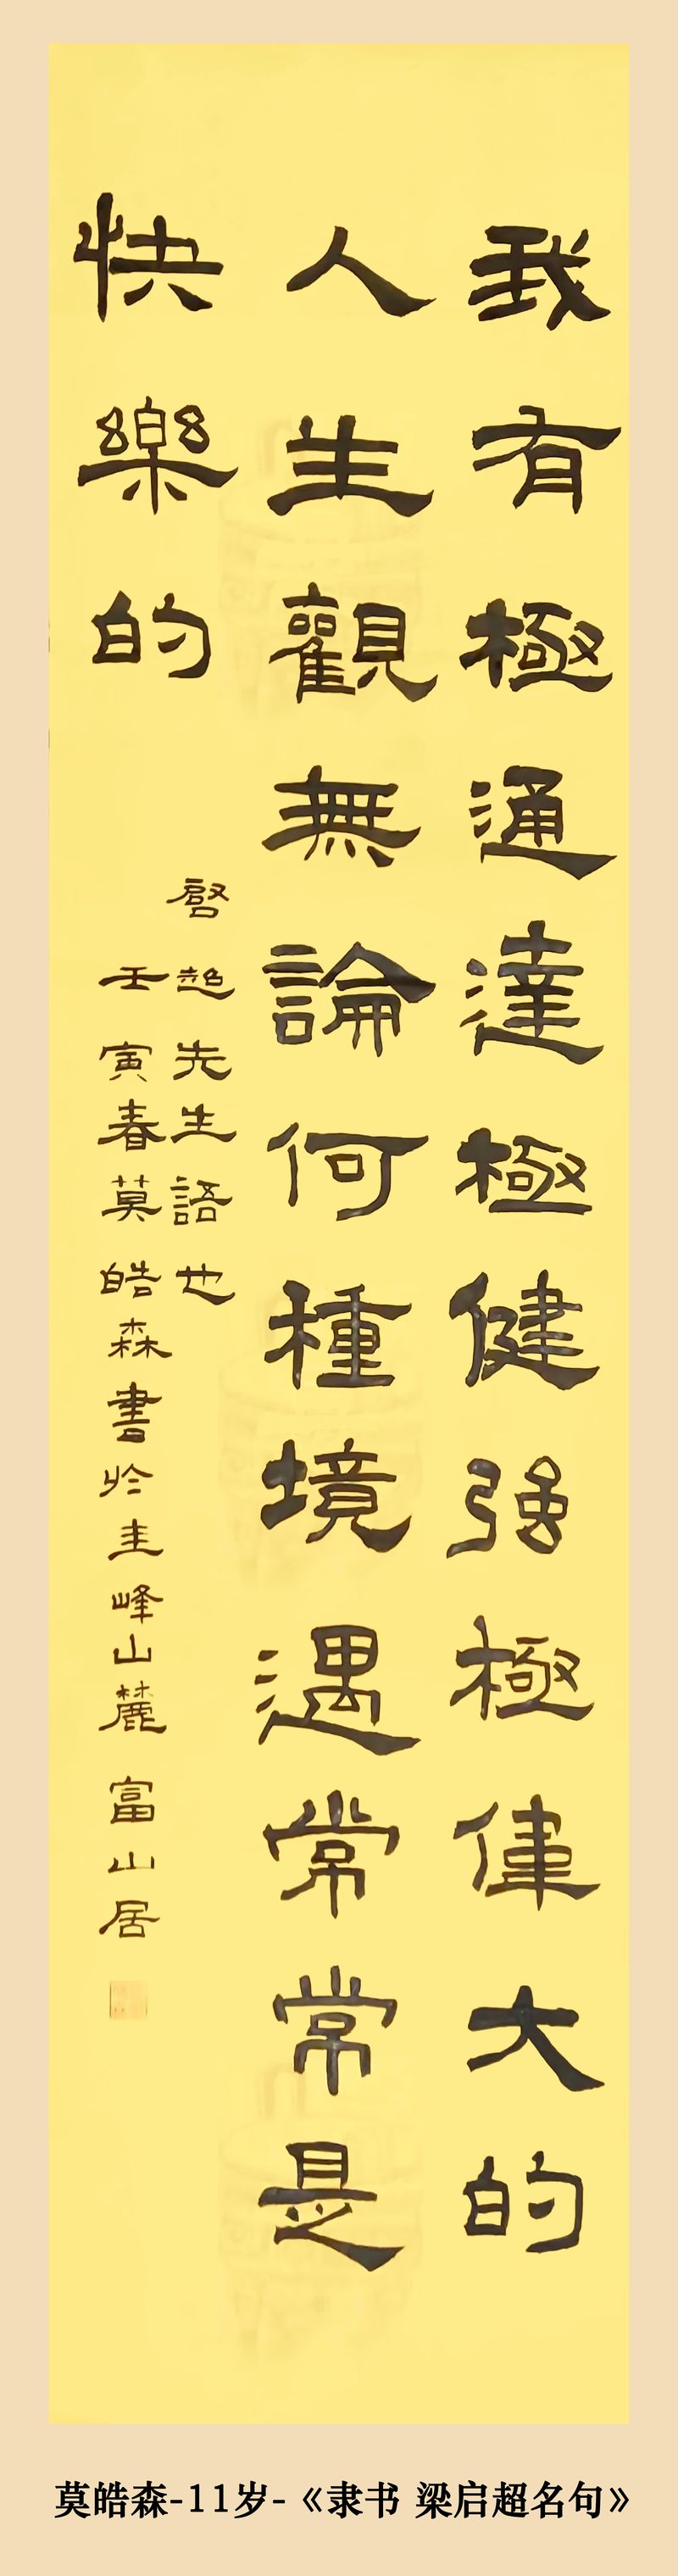 我有極通達極健强極偉大的
人生觀無論何種境遇常常是
快樂的
啓超先生語也
壬寅春莫皓森書於圭峰山麓富山居
莫皓森-11岁-《隶书 梁启超名句》